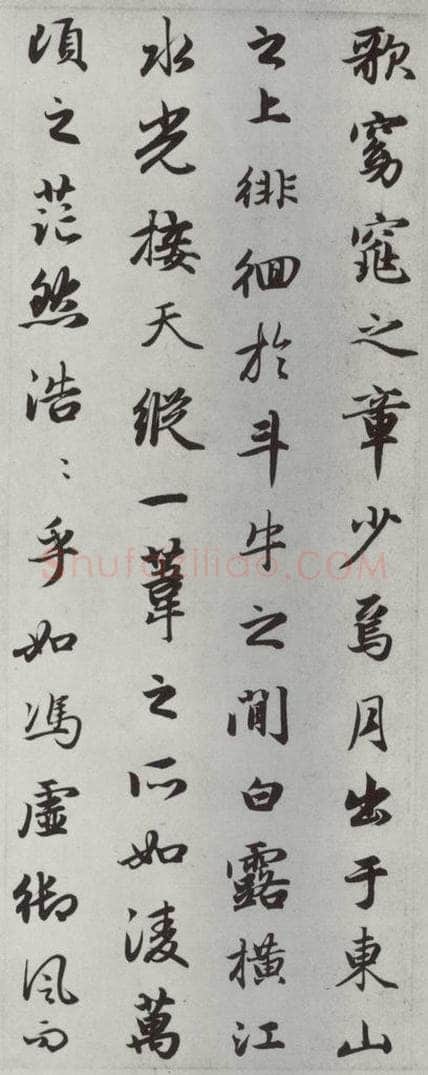 歌窈窕之章少焉月出于東山
之上徘徊於斗牛之間白露橫江
水光接天縱一葦之所如淩萬
頃之茫然浩〻乎如馮虛御風而
Shufaziliao.COM